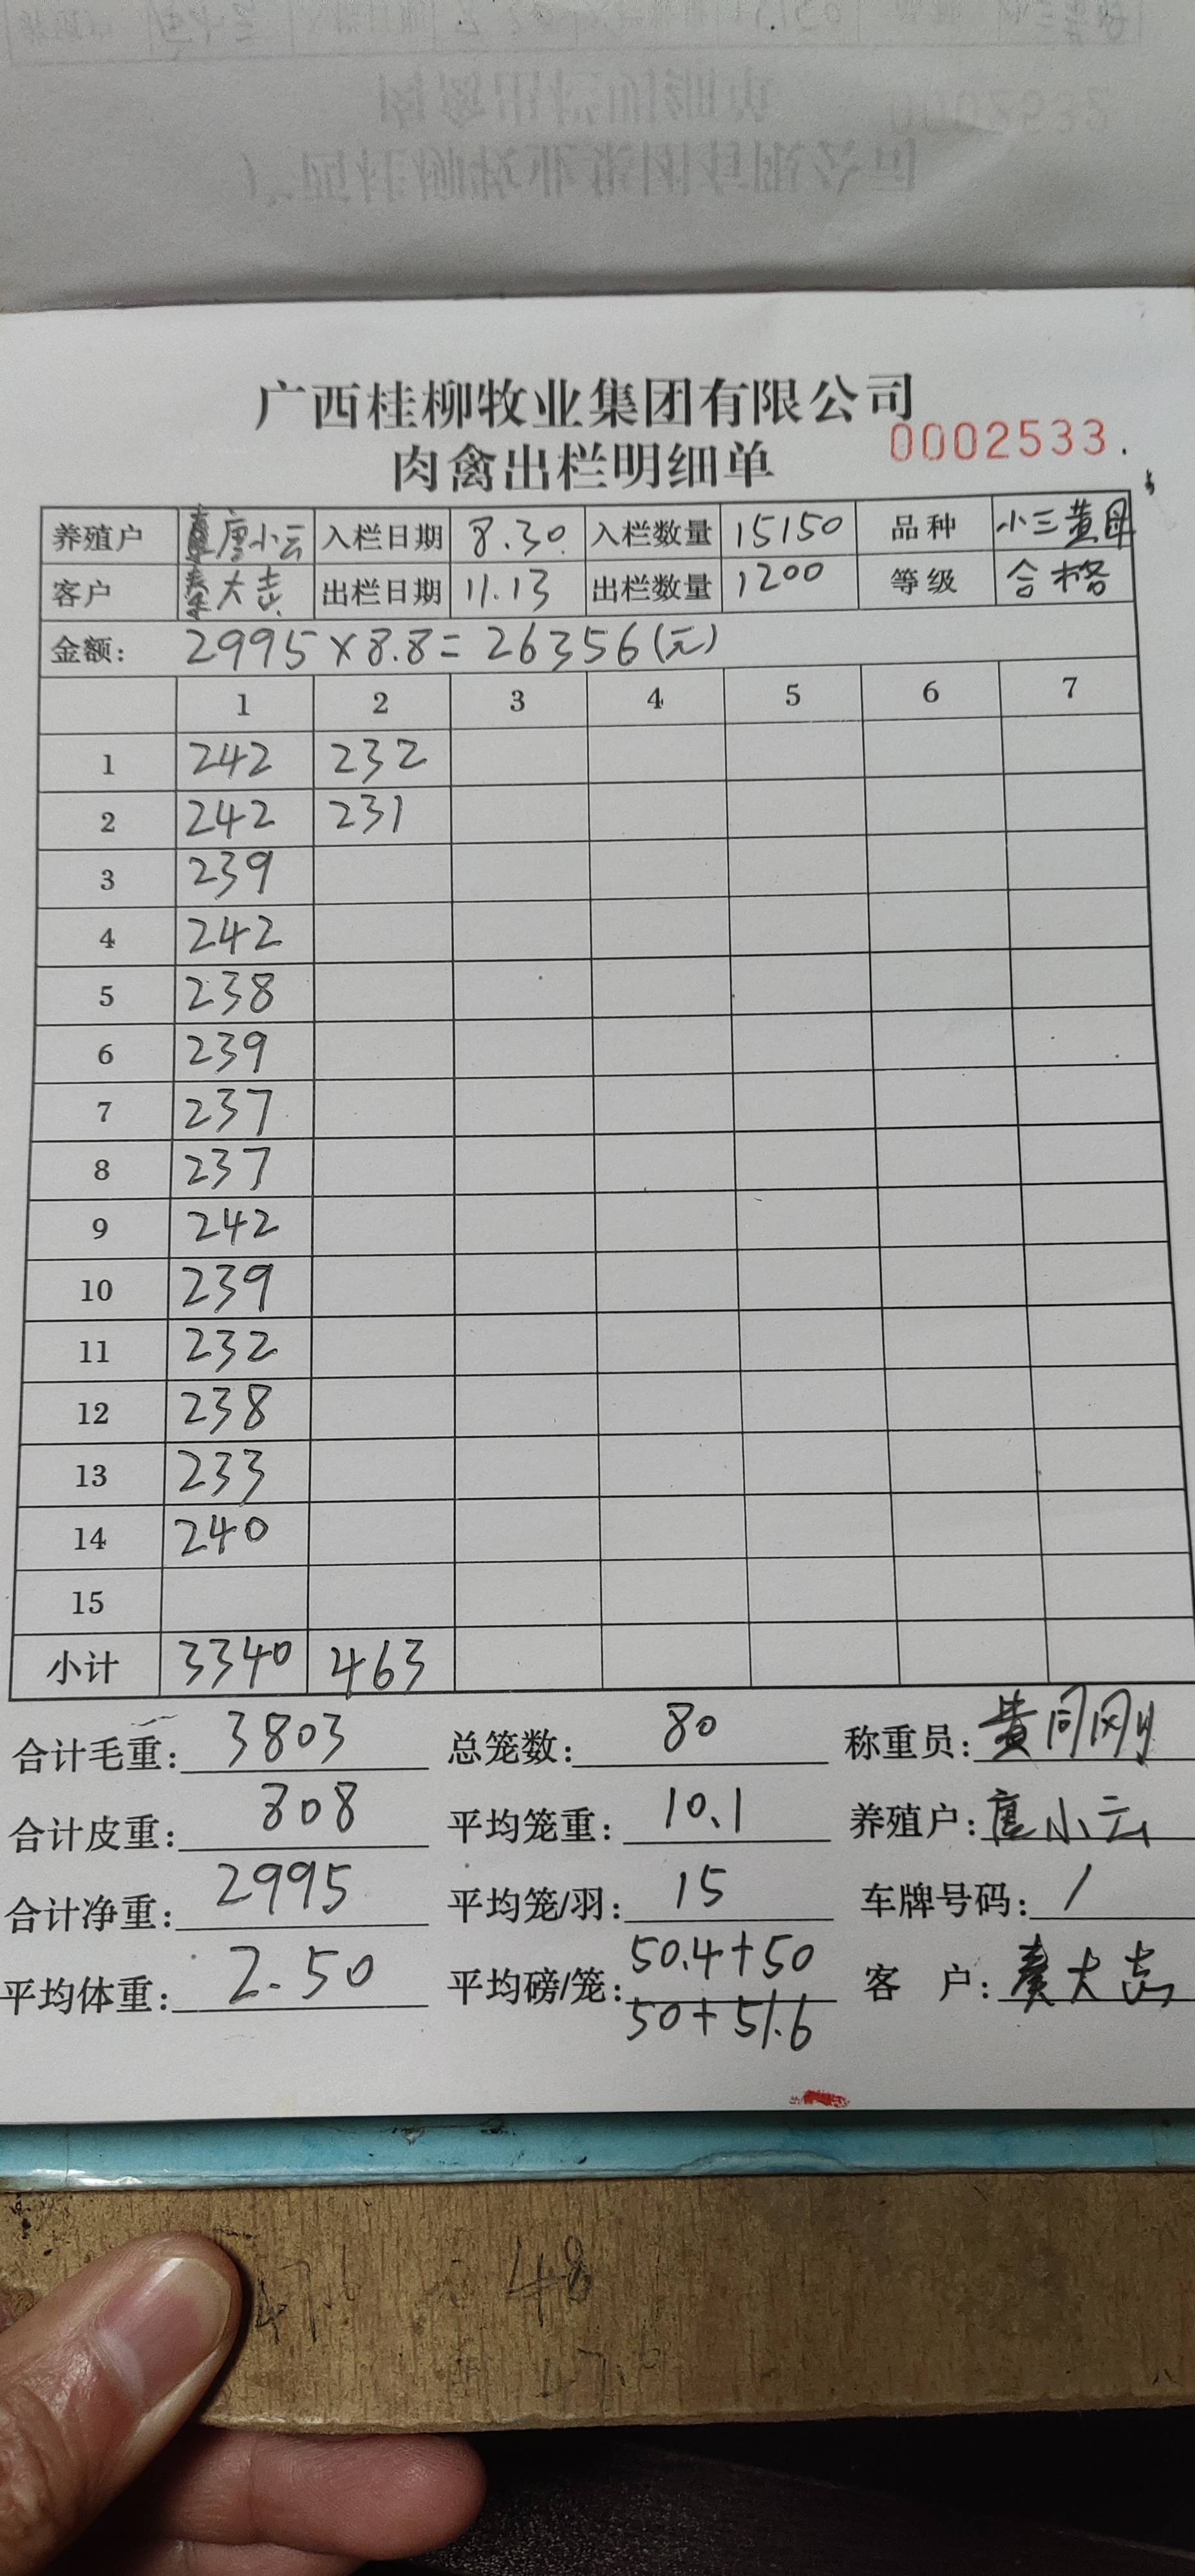 广西桂柳牧业集团有限公司
肉禽出栏明细单 0002533
养殖户 唐小云 入栏日期 8.30 入栏数量 15150 品种 小三黄母
客户 秦大志 出栏日期 11.13 出栏数量 1200 等级 合格
金额: 2995×8.8=26356(元)
1 2 3 4 5 6 7
1 242 232
2 242 231
3 239
4 242
5 238
6 239
7 237
8 237
9 242
10 239
11 232
12 238
13 233
14 240
15
小计 3340 463
合计毛重: 3803 总笼数: 80 称重员: 黄同刚
合计皮重: 808 平均笼重: 10.1 养殖户: 唐小云
合计净重: 2995 平均笼/羽: 15 车牌号码: /
平均体重: 2.50 平均磅/笼: 50.4+50 客 户: 秦大志
50+51.6
48